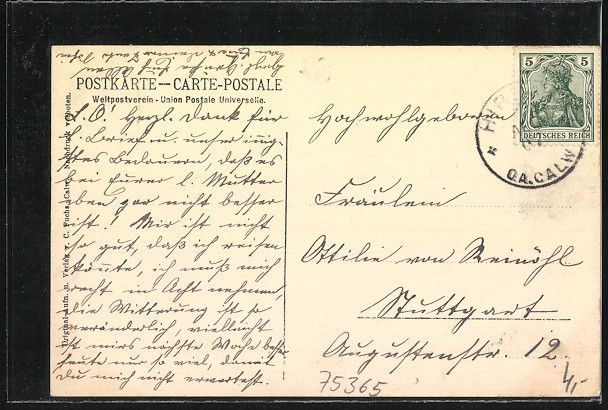 POSTKARTE — CARTE-POSTALE
Weltpostverein - Union Postale Universelle.
L. O! Herzl. Dank für
l. Brief u. unser innig-
stes Bedauern, daß es
bei Eurer l. Mutter
eben gar nicht besser
ist! Mir ist nicht
so gut, daß ich reisen
könnte, ich muß mich
recht in Acht nehmen,
die Witterung ist so
veränderlich, vielleicht
ist mirs nächste Woche besser
heute nur so viel, damit
Du mich nicht erwartest.
Original-Aufn. u. Verlag v. C. Fuchs, Calw. Nachdruck verboten.
Hochwohlgeboren
Fräulein
Ottilie von Reinöhl
Stuttgart
Augustenstr. 12
5 5
DEUTSCHES REICH
O.A. CALW
75365
4,-